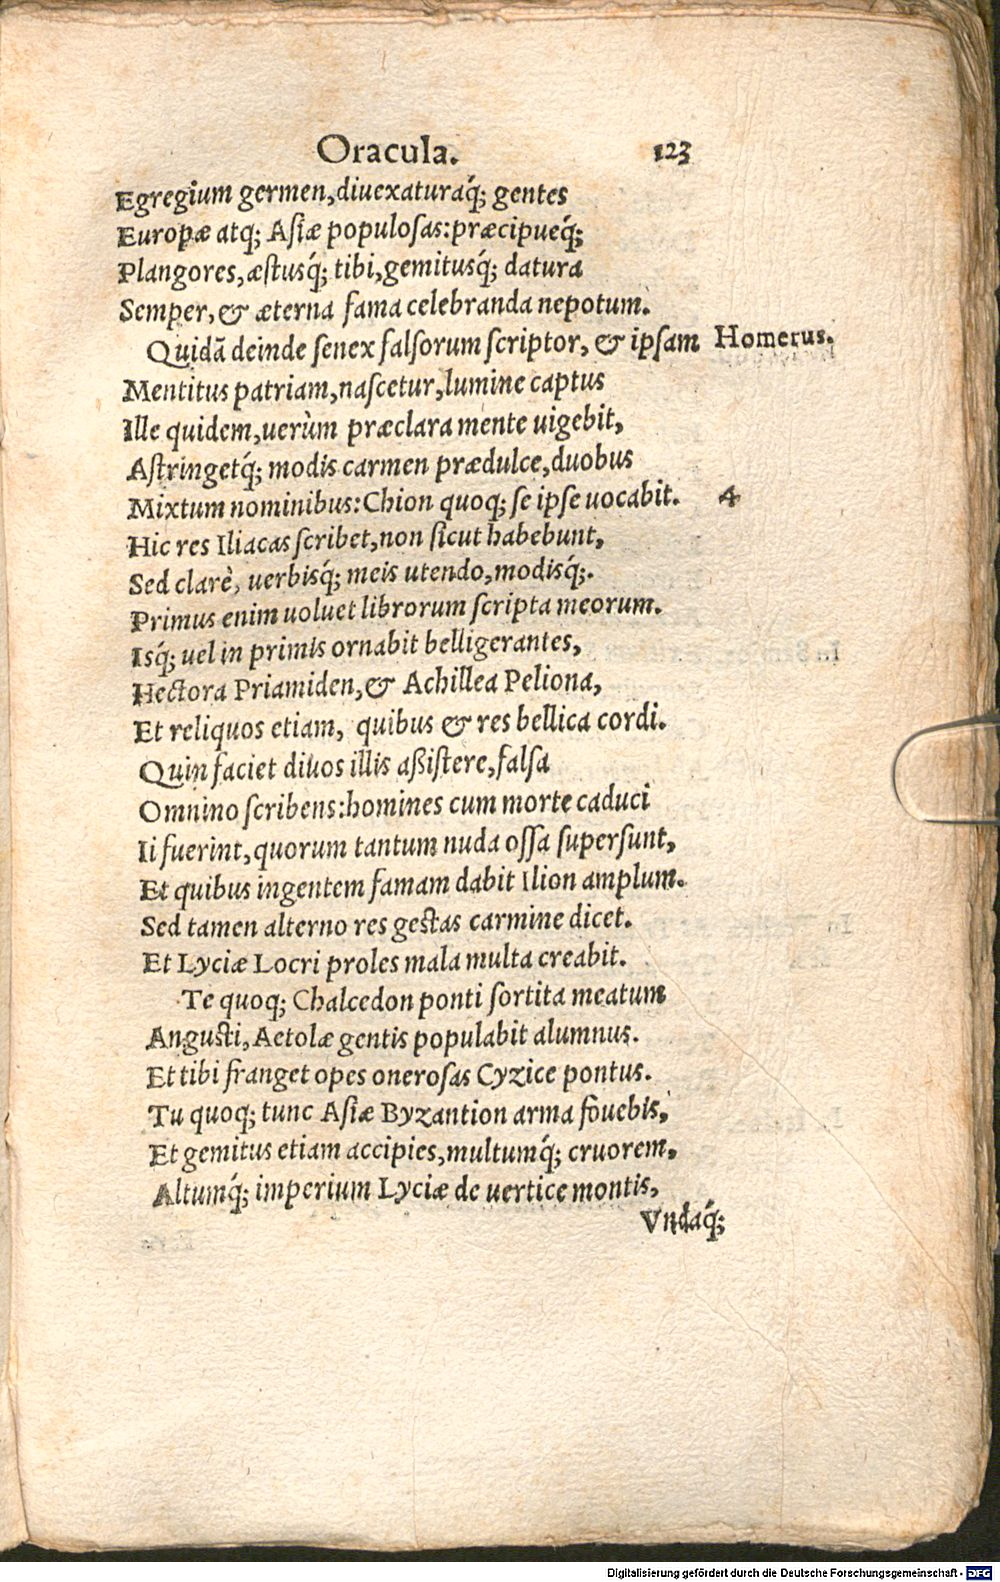 Oracula. 123
Egregium germen, diuexaturaq́; gentes
Europæ atq; Asiæ populosas: præcipueq́;
Plangores, æstusq́; tibi, gemitusq́; datura
Semper, & æterna fama celebranda nepotum.
Quidã deinde senex falsorum scriptor, & ipsam Homerus.
Mentitus patriam, nascetur, lumine captus
Ille quidem, uerùm præclara mente uigebit,
Astringetq́; modis carmen prædulce, duobus
Mixtum nominibus: Chion quoq; se ipse uocabit. 4
Hic res Iliacas scribet, non sicut habebunt,
Sed clarè, uerbisq́; meis utendo, modisq́;.
Primus enim uoluet librorum scripta meorum.
Isq́; uel in primis ornabit belligerantes,
Hectora Priamiden, & Achillea Peliona,
Et reliquos etiam, quibus & res bellica cordi.
Quin faciet diuos illis aßistere, falsa
Omnino scribens: homines cum morte caduci
Ii fuerint, quorum tantum nuda ossa supersunt,
Et quibus ingentem famam dabit Ilion amplum.
Sed tamen alterno res gestas carmine dicet.
Et Lyciæ Locri proles mala multa creabit.
Te quoq; Chalcedon ponti sortita meatum
Angusti, Aetolæ gentis populabit alumnus.
Et tibi franget opes onerosas Cyzice pontus.
Tu quoq; tunc Asiæ Byzantion arma fouebis,
Et gemitus etiam accipies, multumq́; cruorem,
Altumq́; imperium Lyciæ de uertice montis,
Vndaq́;
Digitalisierung gefördert durch die Deutsche Forschungsgemeinschaft - DFG